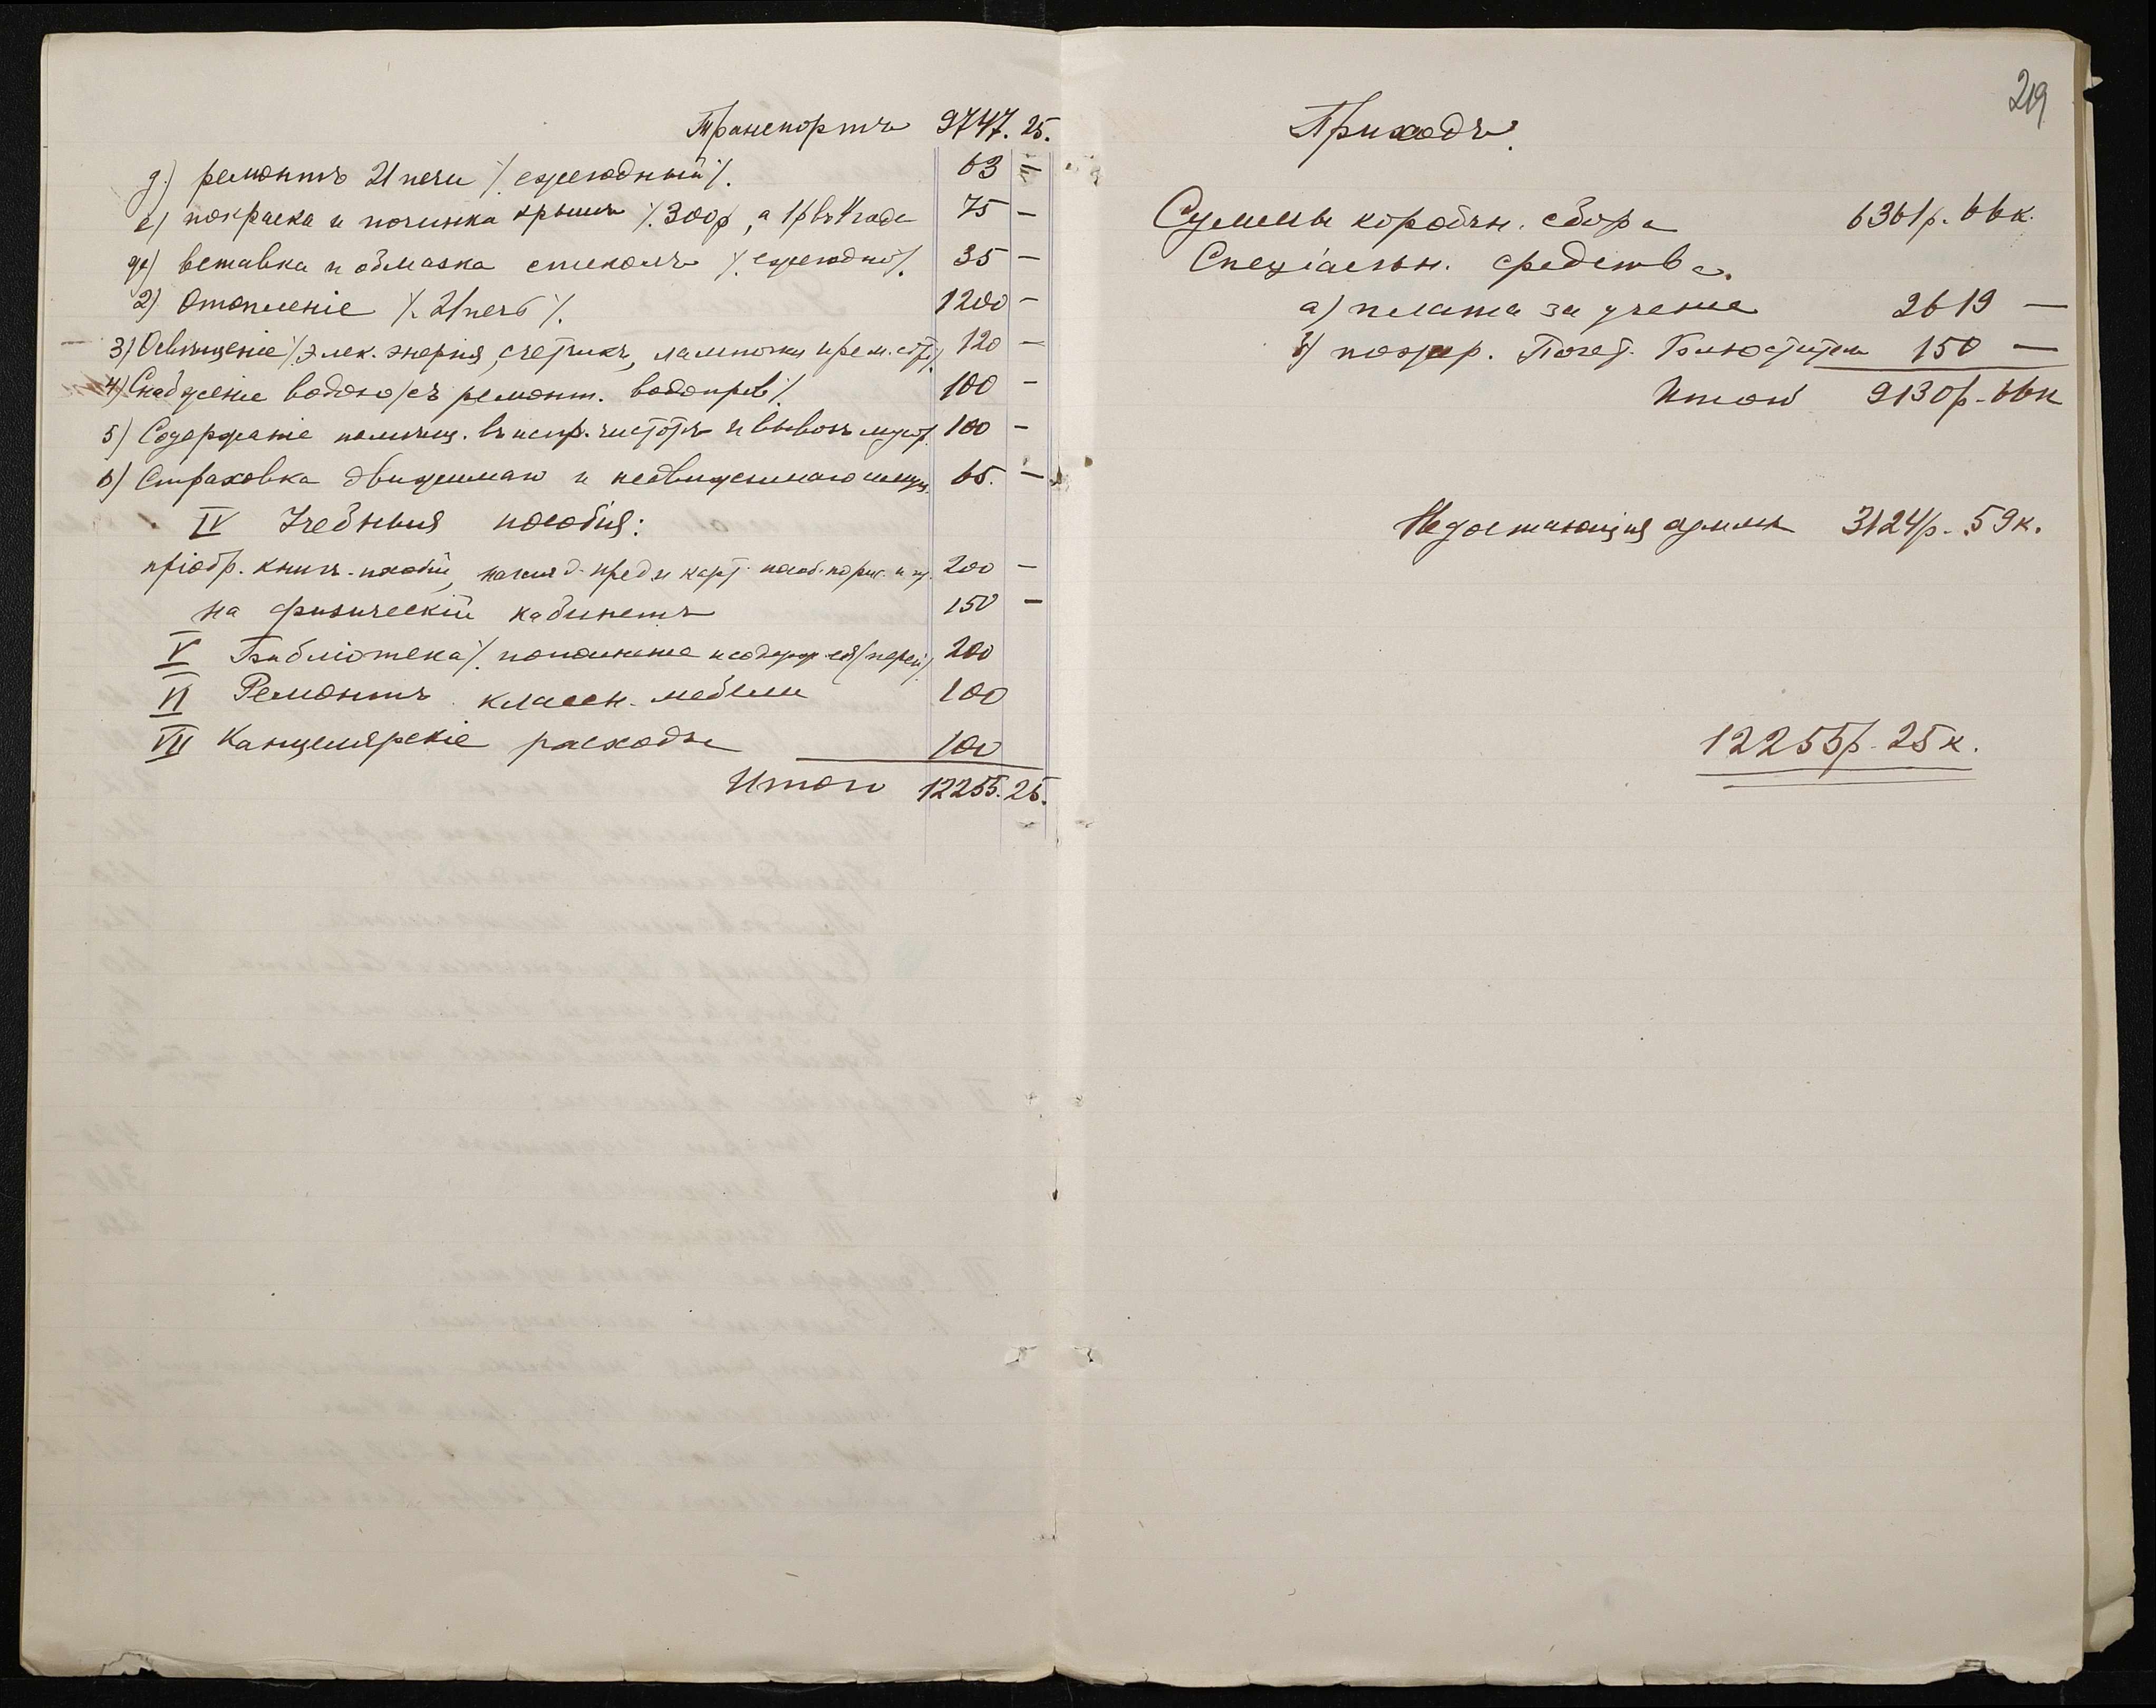 Транспортъ 9747. 25.
д.) ремонтъ 21 печи /. ежегодный /. 63 =
е) покраска и починка крышъ /. 300р, а 1 р въ 4 года 75 –
ж) вставка и обмазка стеколъ /. ежегодно /. 35 –
2) Отопленіе /. 21 печь /. 1200 –
3) Освѣщеніе /. элек. энергія, счетчикъ, лампочки и рем. 120 –
4) Снабженіе водою /съ ремонт. водопров /. 100 –
5) Содержаніе помѣщ. въ испр. чистотѣ и вывозъ мусор. 100 –
6) Страховка движимаго и недвижимаго имущ. 65. –
IV Учебныя пособія:
пріобр. книгъ-пособій, нагляд. пред. и карт. пособ. по рис. и 200 –
на физическій кабинетъ 150 –
V Библіотека /. пополненіе и содерж. 200
VI Ремонтъ классн. мебели 100
VII Канцелярскіе расходы 100
Итого 12255. 25.
219
Приходъ.
Суммы коробочн. сбора 6361р. 66к.
Спеціальн. средства.
а) плата за ученіе 2619 —
б) пожер. Почет. Блюстителя 150 —
Итого 9130р. 66к
Недостающія суммы 3124р. 59к.
12255р. 25к.